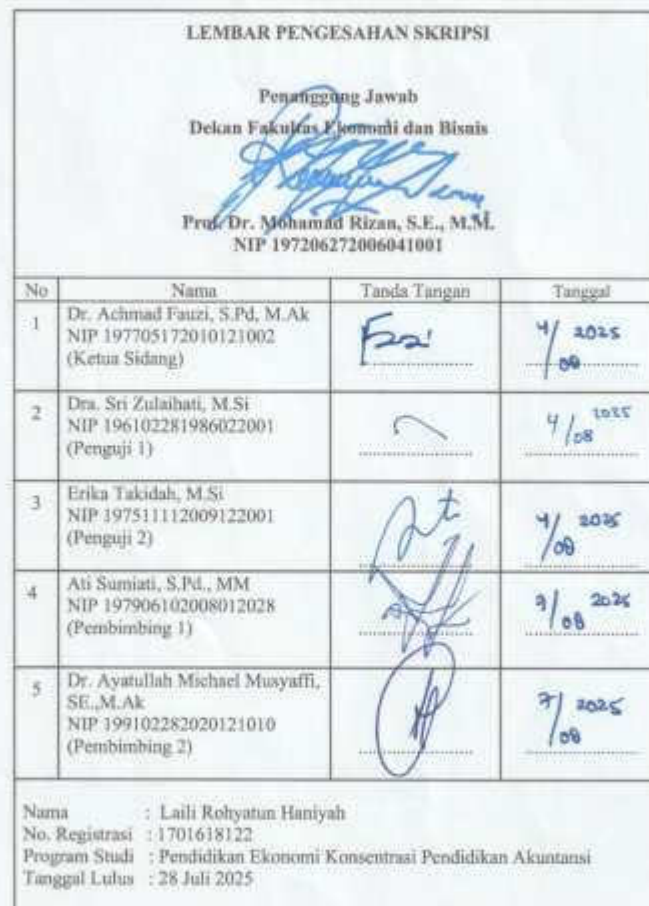 LEMBAR PENGESAHAN SKRIPSI
Penanggung Jawab
Dekan Fakultas Ekonomi dan Bisnis
Prof. Dr. Mohamad Rizan, S.E., M.M.
NIP 197206272006041001
No Nama Tanda Tangan Tanggal
1 Dr. Achmad Fauzi, S.Pd, M.Ak
NIP 197705172010121002
(Ketua Sidang)
4/08 2025
2 Dra. Sri Zulaihati, M.Si
NIP 196102281986022001
(Penguji 1)
4/08 2025
3 Erika Takidah, M.Si
NIP 197511112009122001
(Penguji 2)
4/08 2025
4 Ati Sumiati, S.Pd., MM
NIP 197906102008012028
(Pembimbing 1)
/08 2025
5 Dr. Ayatullah Michael Musyaffi,
SE.,M.Ak
NIP 199102282020121010
(Pembimbing 2)
7/08 2025
Nama : Laili Rohyatun Haniyah
No. Registrasi : 1701618122
Program Studi : Pendidikan Ekonomi Konsentrasi Pendidikan Akuntansi
Tanggal Lulus : 28 Juli 2025